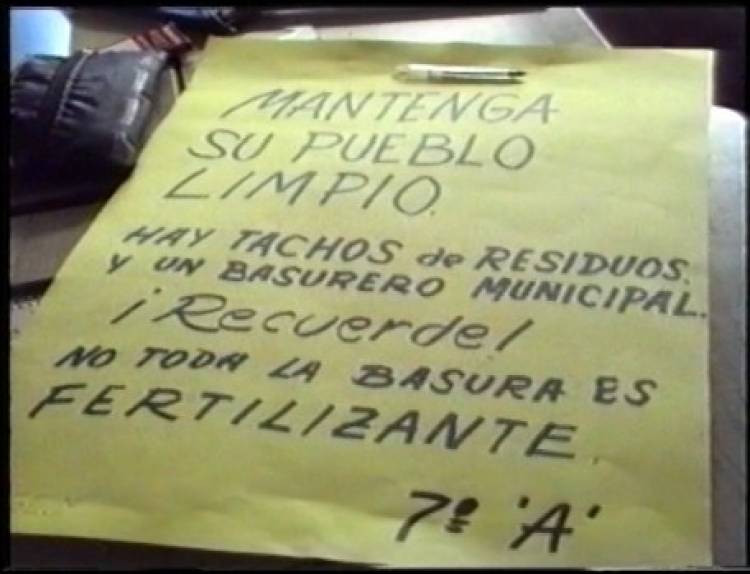 MANTENGA
SU PUEBLO
LIMPIO.
HAY TACHOS de RESIDUOS.
Y UN BASURERO MUNICIPAL.
¡Recuerde!
NO TODA LA BASURA ES
FERTILIZANTE.
7º 'A'